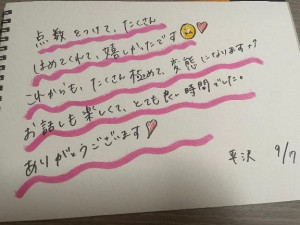 点数をつけて、たくさん
ほめてくれて、嬉しかったです
これからも、たくさん極めて、変態になります
お話しも楽しくて、とても良い時間でした。
ありがとうございます
平沢 9/7